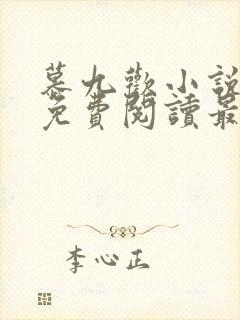 慕九歡小說
免費閱讀最
李心正